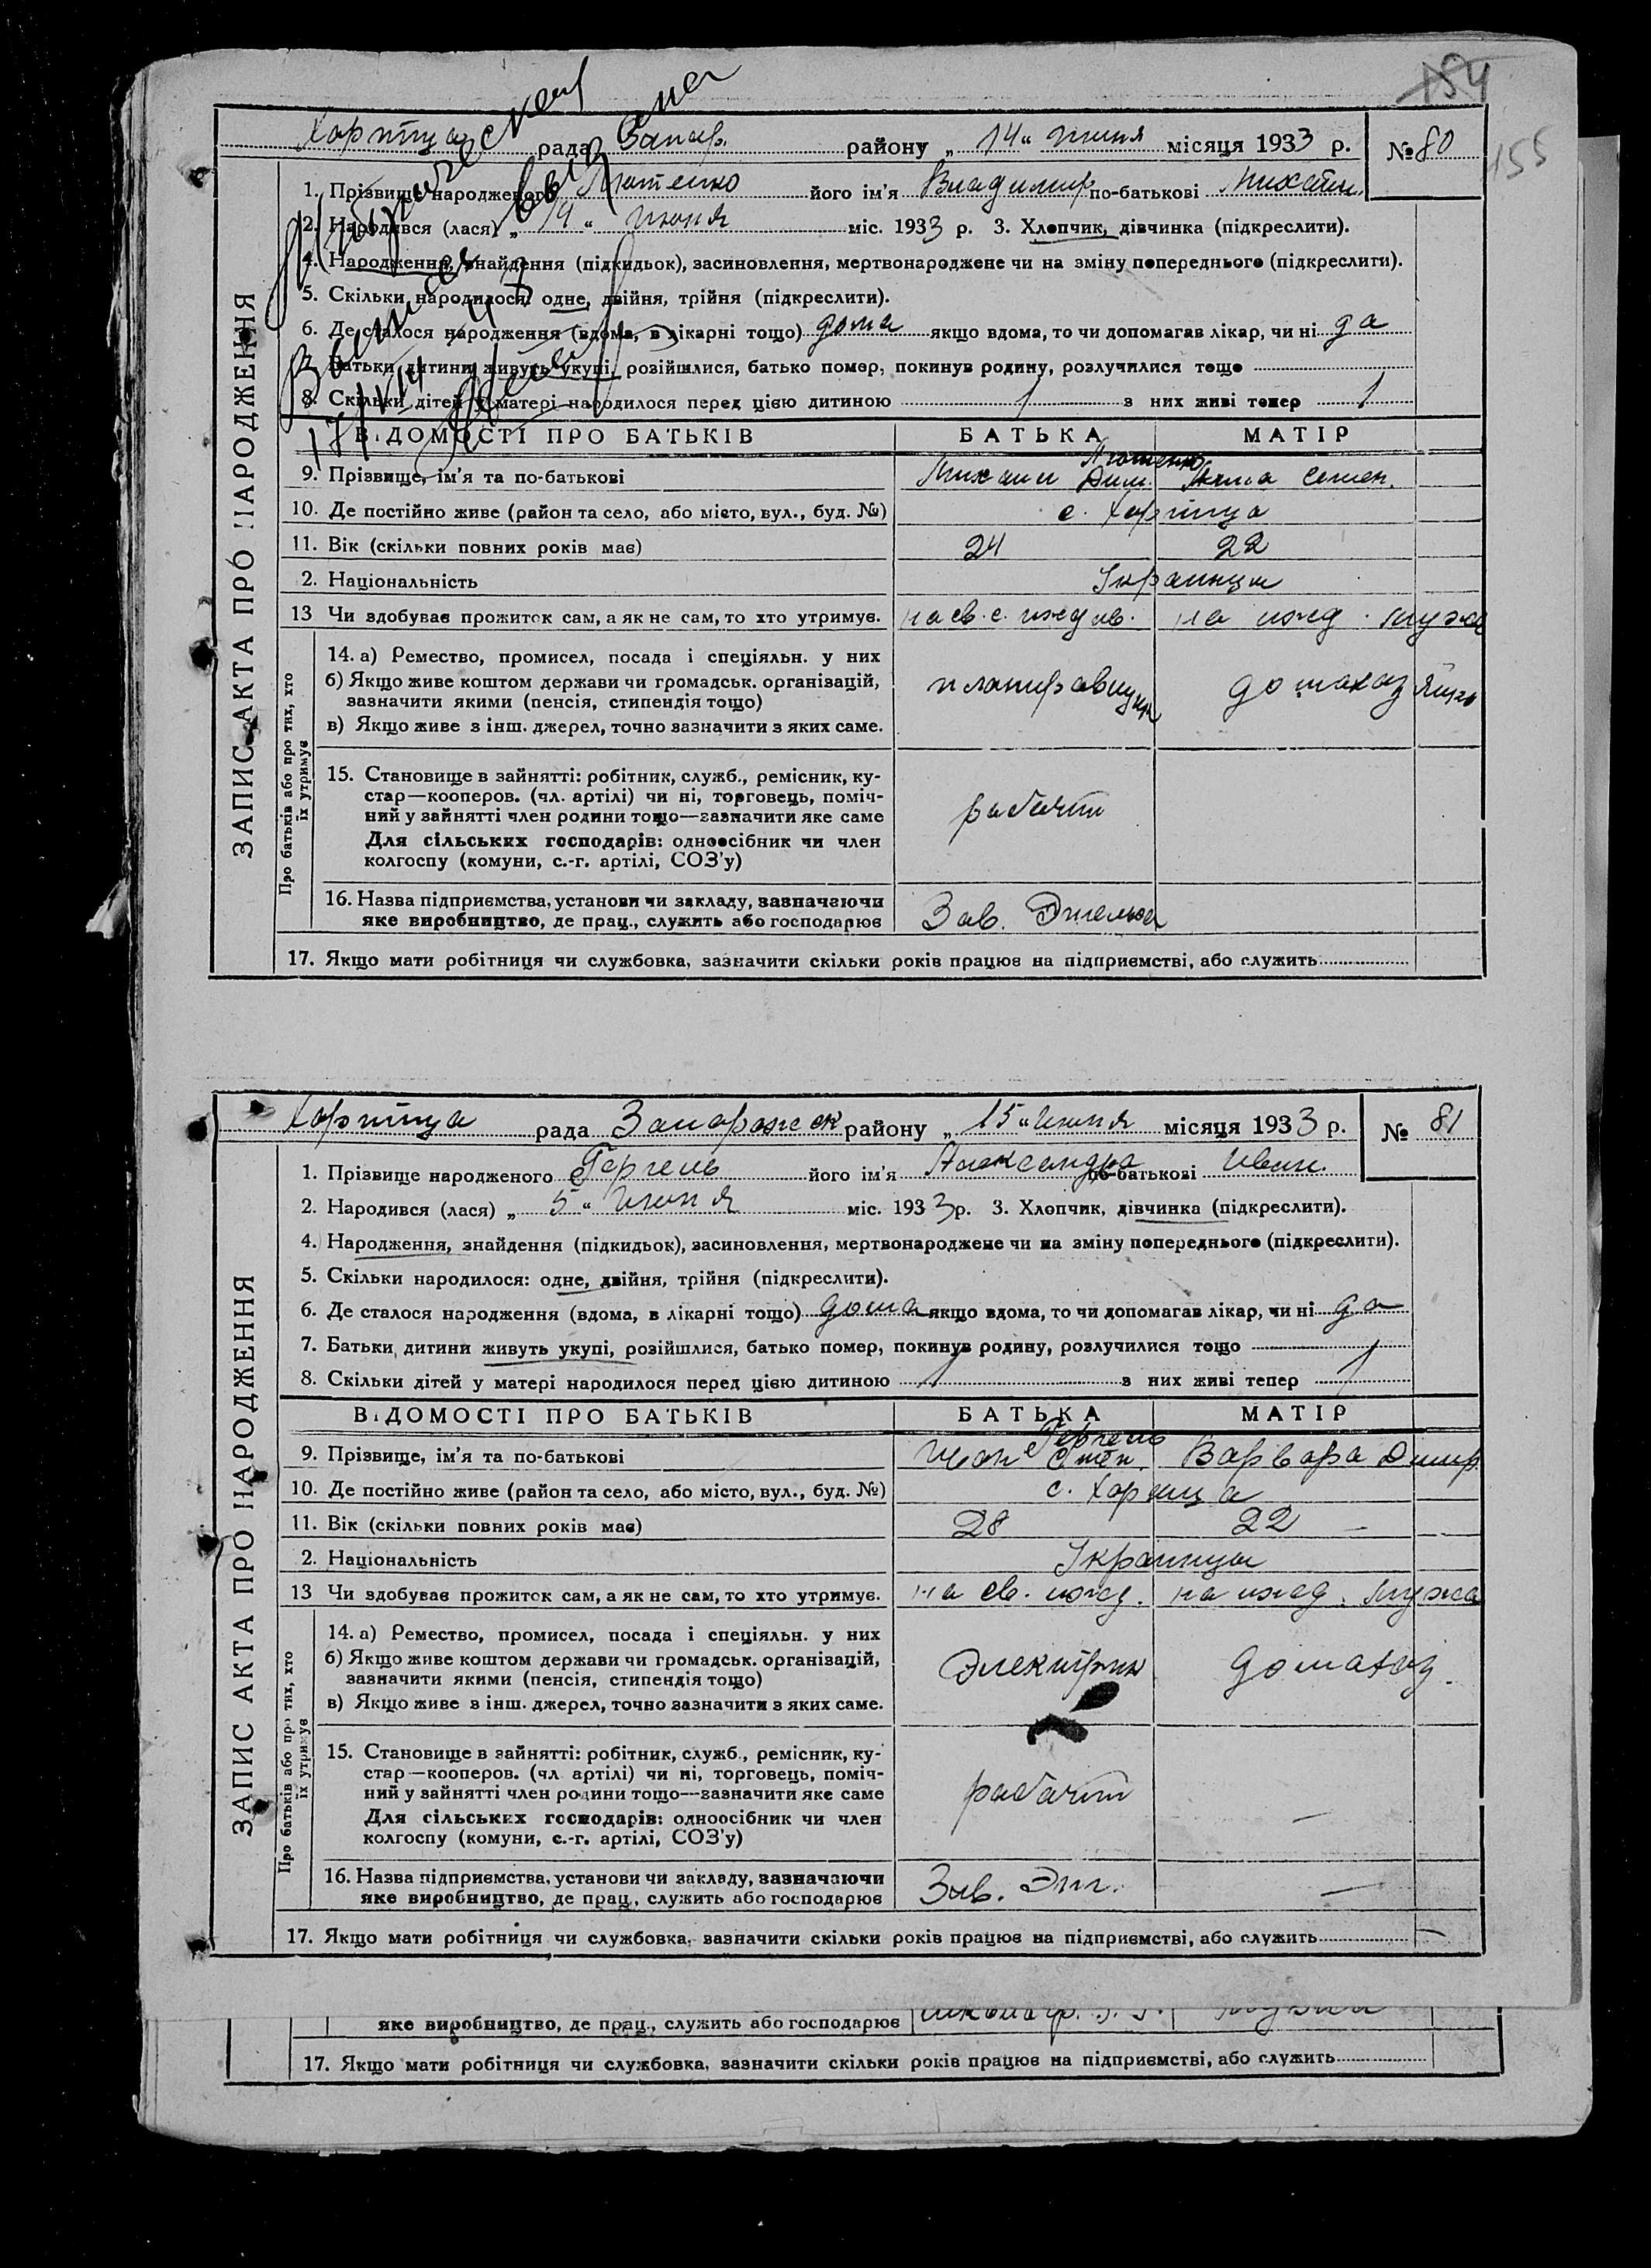 154
155
Хортица рада Запор. району „ 14 “ июня місяця 1933 р. № 80
1. Прізвище народженого його ім'я Владимир по-батькові Михайл.
2. Народився (лася) „ “ июня міс. 1933 р. 3. Хлопчик, дівчинка (підкреслити).
4. Народження, знайдення (підкидьок), засиновлення, мертвонароджене чи на зміну попереднього (підкреслити).
5. Скільки народилося: одне, двійня, трійня (підкреслити).
6. Де сталося народження (вдома, в лікарні тощо) дома якщо вдома, то чи допомагав лікар, чи ні да
7. Батьки дитини живуть укупі, розійшлися, батько помер, покинув родину, розлучилися тощо
8. Скільки дітей у матері народилося перед цією дитиною 1 з них живі тепер 1
ВІДОМОСТІ ПРО БАТЬКІВ БАТЬКА МАТІР
9. Прізвище, ім'я та по-батькові Михаил Дим. Анна Семен.
10. Де постійно живе (район та село, або місто, вул., буд. №) с. Хортица
11. Вік (скільки повних років має) 24 22
2. Національність Украинцы
13 Чи здобуває прожиток сам, а як не сам, то хто утримує. на св. с. иждив. на ижд. мужа
14. а) Ремество, промисел, посада і спеціяльн. у них
б) Якщо живе коштом держави чи громадськ. організацій,
зазначити якими (пенсія, стипендія тощо) планировщик домохозяйка
в) Якщо живе з інш. джерел, точно зазначити з яких саме.
15. Становище в зайнятті: робітник, служб., ремісник, ку-
стар—кооперов. (чл. артілі) чи ні, торговець, поміч-
ний у зайнятті член родини тощо—зазначити яке саме рабочий
Для сільських господарів: одноосібник чи член
колгоспу (комуни, с.-г. артілі, СОЗ'у)
16. Назва підприємства, установи чи закладу, зазначаючи
яке виробництво, де прац., служить або господарює Зав. Энгельса
17. Якщо мати робітниця чи службовка, зазначити скільки років працює на підприємстві, або служить
ЗАПИС АКТА ПРО НАРОДЖЕННЯ
Про батьків або про тих, хто
їх утримує
Хортица рада Запорожск району „ 15 “ июня місяця 1933 р. № 81
1. Прізвище народженого Гергель його ім'я Александра по-батькові Иван.
2. Народився (лася) „ 5 “ июня міс. 1933 р. 3. Хлопчик, дівчинка (підкреслити).
4. Народження, знайдення (підкидьок), засиновлення, мертвонароджене чи на зміну попереднього (підкреслити).
5. Скільки народилося: одне, двійня, трійня (підкреслити).
6. Де сталося народження (вдома, в лікарні тощо) дома якщо вдома, то чи допомагав лікар, чи ні да
7. Батьки дитини живуть укупі, розійшлися, батько помер, покинув родину, розлучилися тощо
8. Скільки дітей у матері народилося перед цією дитиною 1 з них живі тепер 1
ВІДОМОСТІ ПРО БАТЬКІВ БАТЬКА МАТІР
Гергель
9. Прізвище, ім'я та по-батькові Иван Степ. Варвара Димир.
10. Де постійно живе (район та село, або місто, вул., буд. №) с. Хортица
11. Вік (скільки повних років має) 28 22
2. Національність Украинцы
13 Чи здобуває прожиток сам, а як не сам, то хто утримує. на св. ижд. на ижд. мужа
14. а) Ремество, промисел, посада і спеціяльн. у них
б) Якщо живе коштом держави чи громадськ. організацій,
зазначити якими (пенсія, стипендія тощо) Электрик домохоз.
в) Якщо живе з інш. джерел, точно зазначити з яких саме.
15. Становище в зайнятті: робітник, служб., ремісник, ку-
стар—кооперов. (чл. артілі) чи ні, торговець, поміч-
ний у зайнятті член родини тощо—зазначити яке саме рабочий —
Для сільських господарів: одноосібник чи член
колгоспу (комуни, с.-г. артілі, СОЗ'у)
16. Назва підприємства, установи чи закладу, зазначаючи
яке виробництво, де прац., служить або господарює Зав. Энг. —
17. Якщо мати робітниця чи службовка, зазначити скільки років працює на підприємстві, або служить —
ЗАПИС АКТА ПРО НАРОДЖЕННЯ
Про батьків або про тих, хто
їх утримує
яке виробництво, де прац., служить або господарює
17. Якщо мати робітниця чи службовка, зазначити скільки років працює на підприємстві, або служить